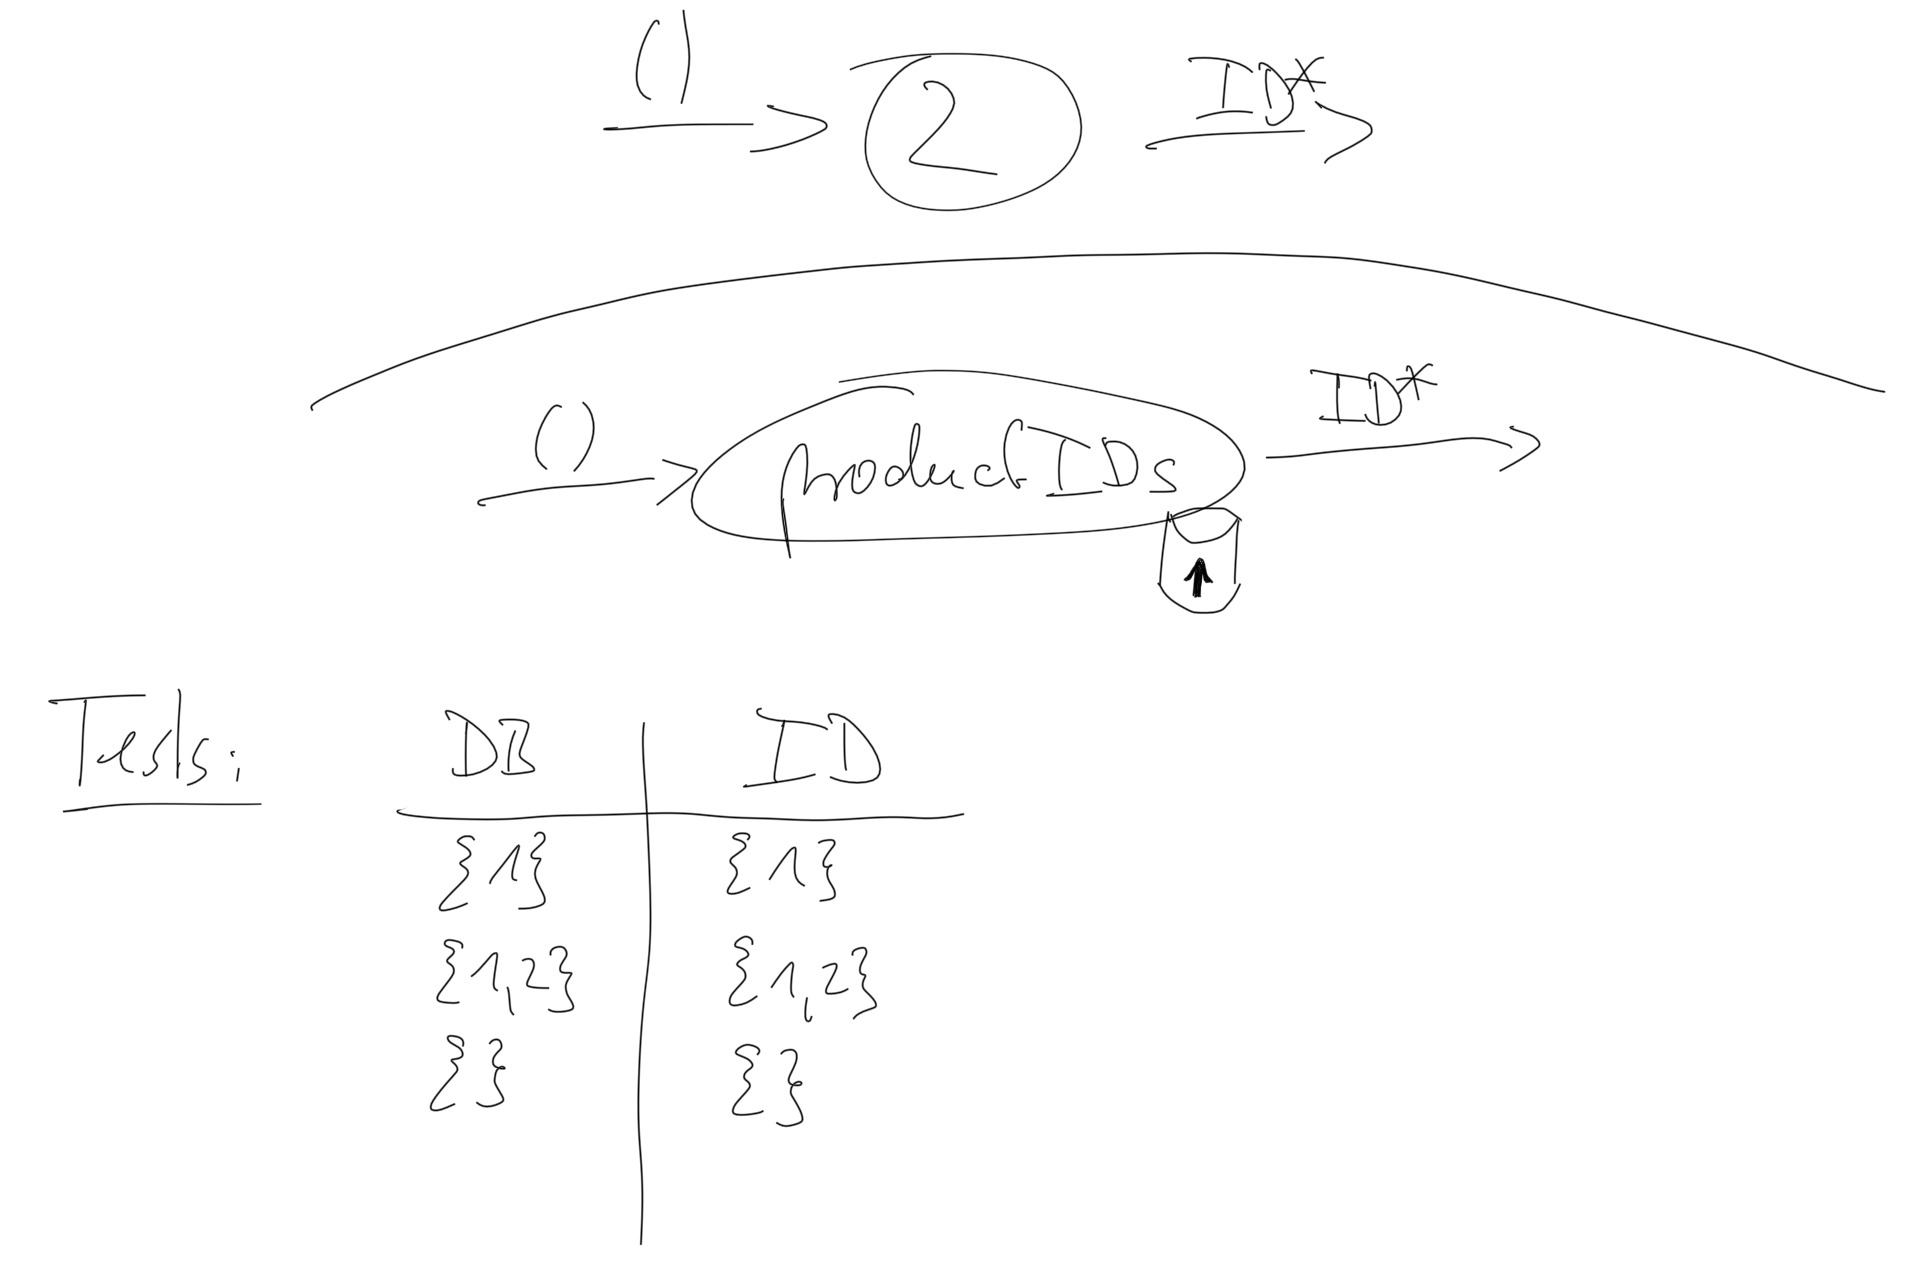 () 2 ID*
() productIDs ID*
Tests: DB ID
{1} {1}
{1,2} {1,2}
{} {}